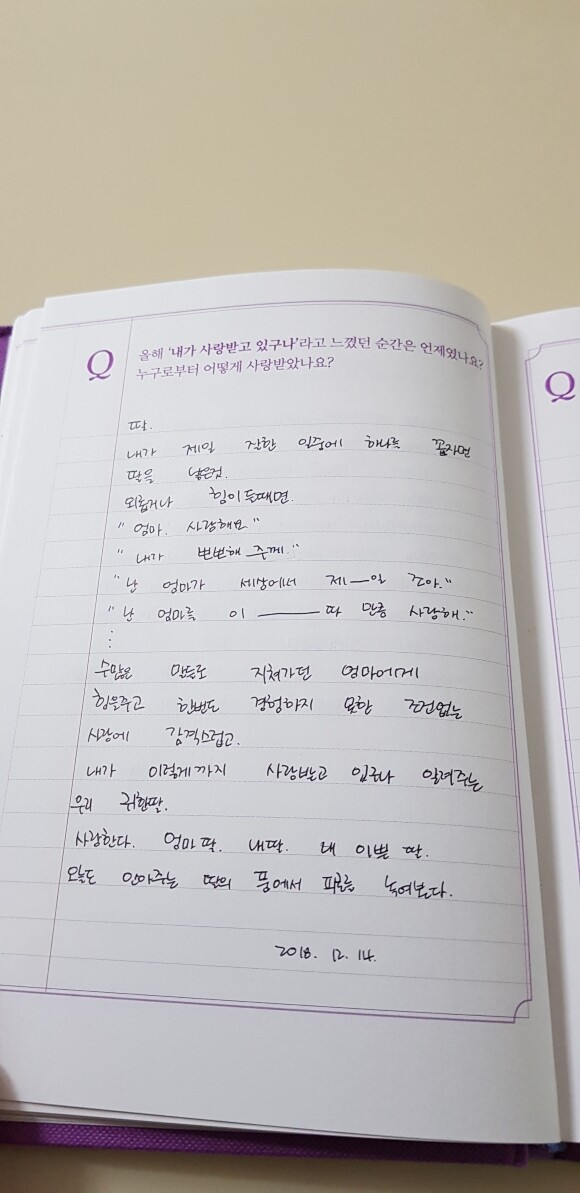 Q
올해 '내가 사랑받고 있구나'라고 느꼈던 순간은 언제였나요?
누구로부터 어떻게 사랑받았나요?
딸.
내가 제일 잘한 일중에 하나를 꼽자면
딸을 낳은것.
외롭거나 힘이 들때면.
"엄마. 사랑해요"
"내가 뽀뽀해 주께."
"난 엄마가 세상에서 제—일 조아."
"난 엄마를 이———따 만큼 사랑해."
⋮
수많은 말들로 지쳐가던 엄마에게
힘을주고 한번도 경험하지 못한 조건없는
사랑에 감격스럽고.
내가 이렇게까지 사랑받고 있구나 알려주는
우리 귀한딸.
사랑한다. 엄마 딸. 내딸. 내 이쁜 딸.
오늘도 안아주는 딸의 품에서 피로를 녹여본다.
2018. 12. 14.
Q